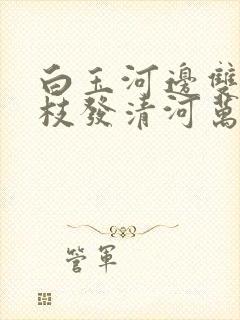 白玉河邊雙
枝發清河萬
管軍